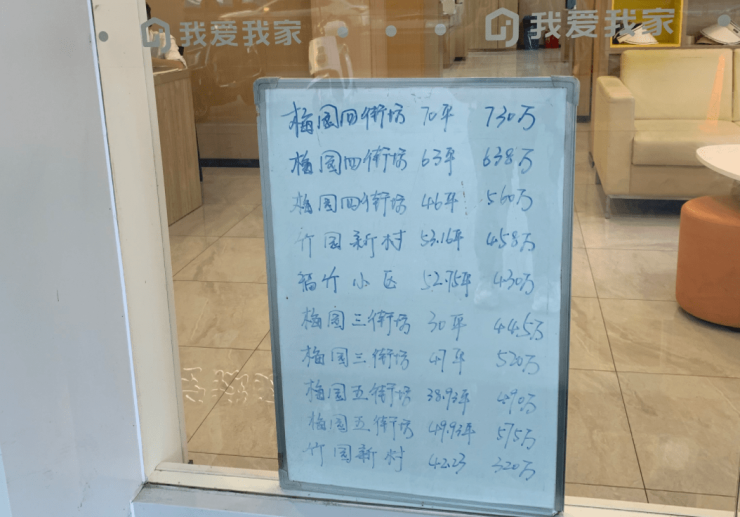 我爱我家 我爱我家
梅园四街坊 70平 730万
梅园四街坊 63平 638万
梅园四街坊 46平 560万
竹园新村 53.16平 458万
福竹小区 52.75平 430万
梅园三街坊 30平 445万
梅园三街坊 47平 520万
梅园五街坊 38.93平 490万
梅园五街坊 49.93平 575万
竹园新村 42.23 320万